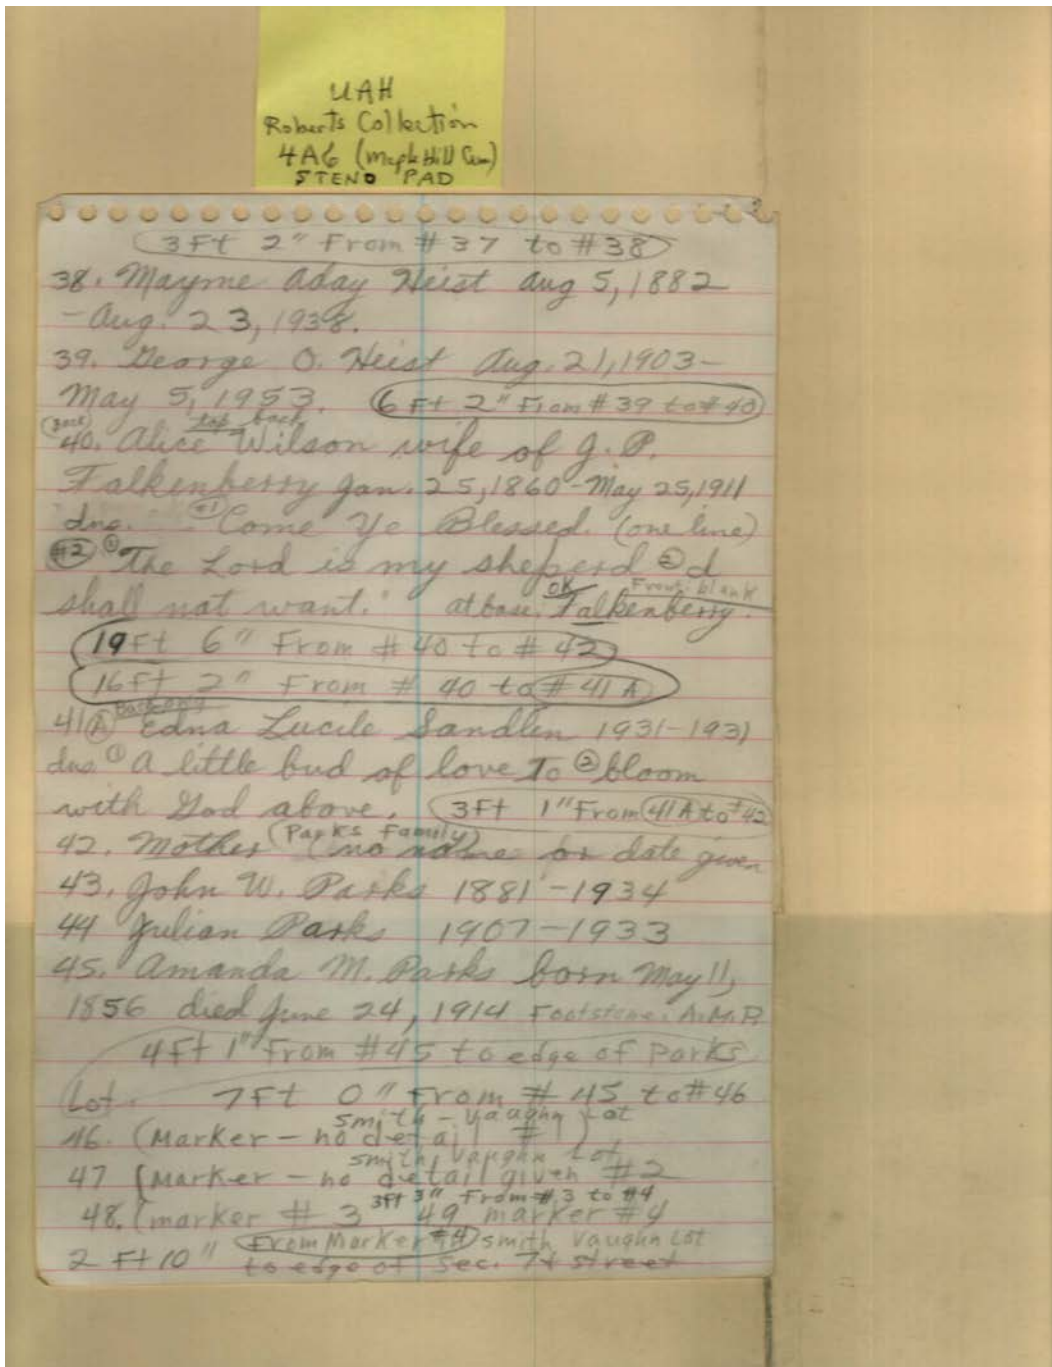 UAH
Roberts Collection
4A6 (Maple Hill Cem)
STENO PAD
3 Ft 2" From #37 to #38
38. Mayme Aday Heist Aug 5, 1882
- Aug. 23, 1938.
39. George O. Heist Aug. 21, 1903 -
May 5, 1953. 6 Ft 2" From #39 to #40
(Back) top back
40. Alice Wilson wife of G. P.
Falkenberry Jan. 25, 1860 - May 25, 1911
#1 Come Ye Blessed. (one line)
#2 ① "The Lord is my sheperd ② I
OK Front: blank
shall not want." at base: Falkenberry.
19 Ft 6" From #40 to #42
16 Ft 2" From # 40 to #41 A
Back only
41 A Edna Lucile Sandlin 1931-1931
Ins. ① A little bud of love To ② bloom
with God above. 3 Ft 1" From 41 A to #42
(Parks Family)
42. Mother (no name or date given
43. John W. Parks 1881 - 1934
44 Julian Parks 1907 - 1933
45. Amanda M. Parks born May 11,
1856 died June 24, 1914 Footstone: A.M.P.
4 Ft 1" From #45 to edge of Parks
Lot. 7 Ft 0" From # 45 to #46
Smith - Vaughn Lot
46. (Marker - no detail #1)
Smith, Vaughn Lot
47 (Marker - no detail given #2
3 ft 3" From #3 to #4
48. (marker # 3 49 marker #4
2 Ft 10" From Marker #4 Smith Vaughn Lot
to edge of Sec. 7+ street